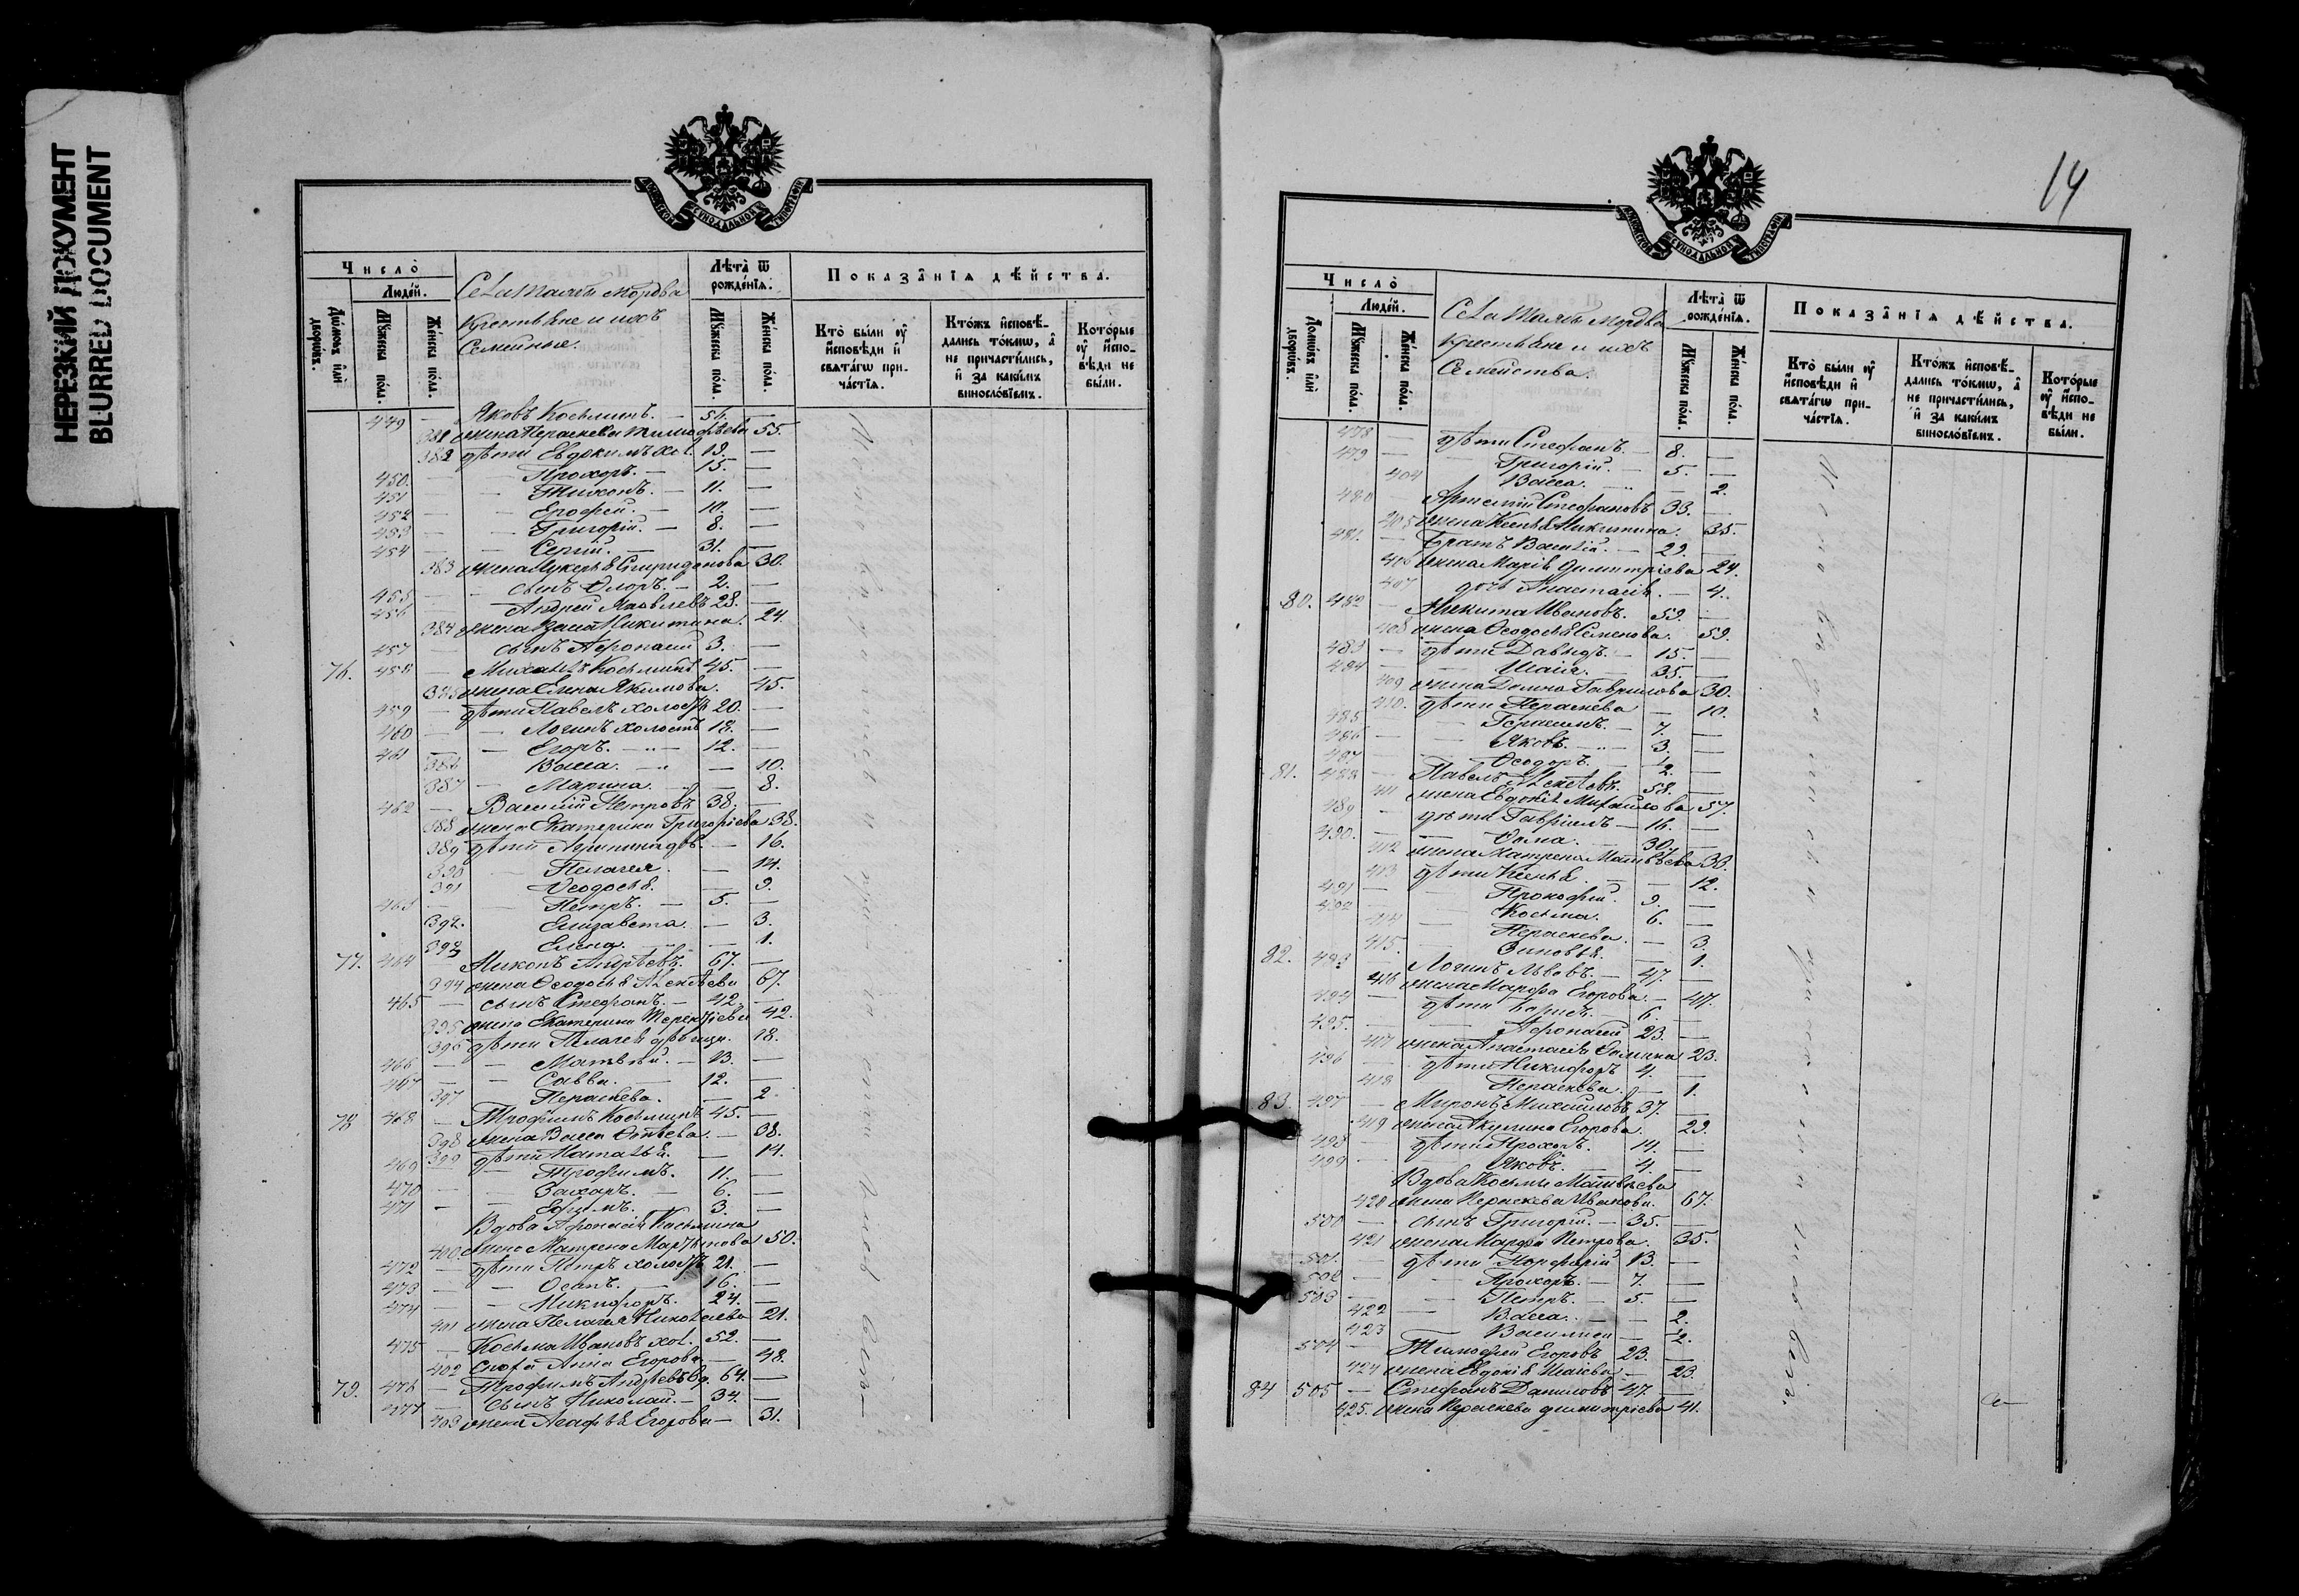 НЕРЕЗКИЙ ДОКУМЕНТ
BLURRED DOCUMENT
МОСКОВСКОЙ СУНОДАЛЬНОЙ ТИПОГРАФІИ
Число̀
Людéй.
Домѡвъ илѝ дворѡвъ.
Мꙋжеска пола.
Женска пола.
Села Мордва
Крестьяне и ихъ
Семейныя.
Лѣта̀ ѿ рождéнїѧ.
Мꙋжеска пола.
Женска пола.
Показа̑нїѧ дѣ́йства.
Кто̀ были ᲂу҆ и҆сповѣди и҆ свѧтагѡ причастїѧ.
Кто́жъ и҆сповѣ́дались то́кмѡ, а҆ не причасти́лись, и҆ за каки́мъ винослóвїемъ.
Кото́рые ᲂу҆ и҆сповѣди не бы́ли.
449 — Яковъ Косьминъ. — 54. —
381 жена Параскева Тимофѣева 55.
382 дѣти Евдокимъ хол. 19. —
450. — Прохоръ. — 15. —
451 — Тихонъ. — 11. —
452 — Ерофей. — 10. —
453 — Григорій. — 8. —
454 — Сергій. — 31. —
383 жена Лукерья Спиридонова 30.
455 — сынъ Флоръ. — 2. —
456 — Андрей Яковлевъ 28. —
384 жена Васса Никитина. 24.
457 — сынъ Афонасій 3. —
76. 458 — Михаилъ Косьминъ 45. —
385 жена Елена Якимова. 45.
459 — дѣти Павелъ холостъ 20. —
460 — Логинъ холостъ 18. —
461 — Егоръ. — 12. —
386 Васса. — 10.
387 — Марина. — 8.
462 — Василій Петровъ 38. —
388 жена Екатерина Григоріева 38.
389 дѣти — 16.
390 Пелагея. — 14.
391 Ѳеодосья. — 9.
463 — Петръ. — 5. —
392. Елизавета. — 3.
393 Елена. — 1.
77. 464 Никонъ Андрѣевъ. 67. —
394 жена Ѳеодосья Алексѣева 67.
465 — сынъ Стефанъ. — 42. —
395 жена Екатерина Терентіева 42.
396 дѣти Пелагея дѣвица. 18.
466 — Матвѣй. — 13. —
467 — Савва. 12. —
397 Параскева. — 2.
78 468 — Трофимъ Косьминъ 45. —
398 жена Васса Фотѣева. — 38.
399 дѣти Наталья. — 14.
469 — Трофимъ. 11. —
470 — Захаръ. — 6. —
471 — Ефимъ. 3. —
Вдова Афонасія Косьмина
400 жена Матрена Мартынова 50.
472 — дѣти Петръ холостъ 21. —
473 — Осипъ. — 16. —
474 — Никифоръ. 24. —
401 жена Пелагея Николаева 21.
475 — Косьма Ивановъ хол. 52. —
402 сноха Анна Егорова — 48.
79. 476 — Трофимъ Андрѣевъ вд. 64. —
477 — сынъ Николай. — 34. —
403 жена Агафья Егорова — 31.
14
МОСКОВСКОЙ СУНОДАЛЬНОЙ ТИПОГРАФІИ
Число̀
Людéй.
Домѡвъ илѝ дворѡвъ.
Мꙋжеска пола.
Женска пола.
Села Мордва
Крестьяне и ихъ
Семейства.
Лѣта̀ ѿ рождéнїѧ.
Мꙋжеска пола.
Женска пола.
Показа̑нїѧ дѣ́йства.
Кто̀ были ᲂу҆ и҆сповѣди и҆ свѧтагѡ причастїѧ.
Кто́жъ и҆сповѣ́дались то́кмѡ, а҆ не причасти́лись, и҆ за каки́мъ винослóвїемъ.
Кото́рые ᲂу҆ и҆сповѣди не бы́ли.
478 — дѣти Стефанъ. — 8. —
479 — Григорій. — 5. —
404 Васса. — 2.
480 — Артемій Стефановъ 33. —
405 жена Ксенья Никитина. 35.
481. — братъ Василій. — 29. —
406 жена Марія Димитріева 24.
407 дочь Анастасія. — 4.
80. 482 — Никита Ивановъ. 59. —
408 жена Ѳеодосья Семенова. 59.
483 — дѣти Давыдъ. — 15. —
484 — Исаія. 35. —
409 жена Домна Гаврилова 30.
410. дѣти Параскева — 10.
485. — Герасимъ. — 7. —
486 — Яковъ. — 3. —
487 — Ѳеодоръ. —
81. 488 — Павелъ Алексѣевъ. 58. —
411 жена Евдокія Михайлова 57.
489 — дѣти Гавріилъ — 16. —
490. — Ѳома. 30. —
412 жена Матрена Матвѣева 33.
413 дѣти Ксенья. — 12.
491 — Прокофій. 9. —
492 — Косьма. 6. —
414 Параскева. — 3.
415. Зиновья. — 1.
82. 493 — Логинъ Львовъ. — 47. —
416 жена Марфа Егорова. — 47.
494 — дѣти Борисъ. 6. —
495. — Афонасій 23. —
417 жена Анастасія Ѳомина 23.
496 — дѣти Никифоръ 4. —
418 Параскева. — 1.
83. 497 — Миронъ Михайловъ 37. —
419 жена Акулина Егорова. 29.
498 — дѣти Прохоръ. 14. —
499 — Яковъ. — 4. —
Вдова Косьмы Матвѣева
420 жена Параскева Иванова. 67.
500 — сынъ Григорій. — 35. —
421 жена Марфа Петрова. 35.
501. — дѣти Порфирій 13. —
502 — Прохоръ. — 7. —
503 — Петръ. — 5. —
422 Васса. — 2.
423 — 2.
504 — Тимофей Егоровъ 23. —
424 жена Евдокія Исаіева — 23.
84 505 — Стефанъ Даниловъ 47. —
425. жена Параскева Димитріева 41.